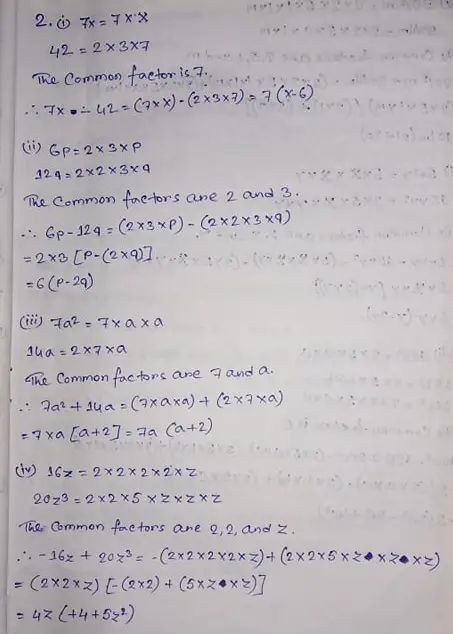 2. (i) 7x = 7 × x
42 = 2×3×7
The Common factor is 7.
∴ 7x - 42 = (7×x) - (2×3×7) = 7 (x-6)
(ii) 6p = 2×3×p
12q = 2×2×3×q
The Common factors are 2 and 3.
∴ 6p - 12q = (2×3×p) - (2×2×3×q)
= 2×3 [p-(2×q)]
= 6(p-2q)
(iii) 7a² = 7×a×a
14a = 2×7×a
The Common factors are 7 and a.
∴ 7a² + 14a = (7×a×a) + (2×7×a)
= 7×a [a+2] = 7a (a+2)
(iv) 16z = 2×2×2×2×z
20z³ = 2×2×5×z×z×z
The Common factors are 2,2, and z.
∴ -16z + 20z³ = -(2×2×2×2×z)+(2×2×5×z×z×z)
= (2×2×z) [-(2×2) + (5×z×z)]
= 4z (+4+5z²)